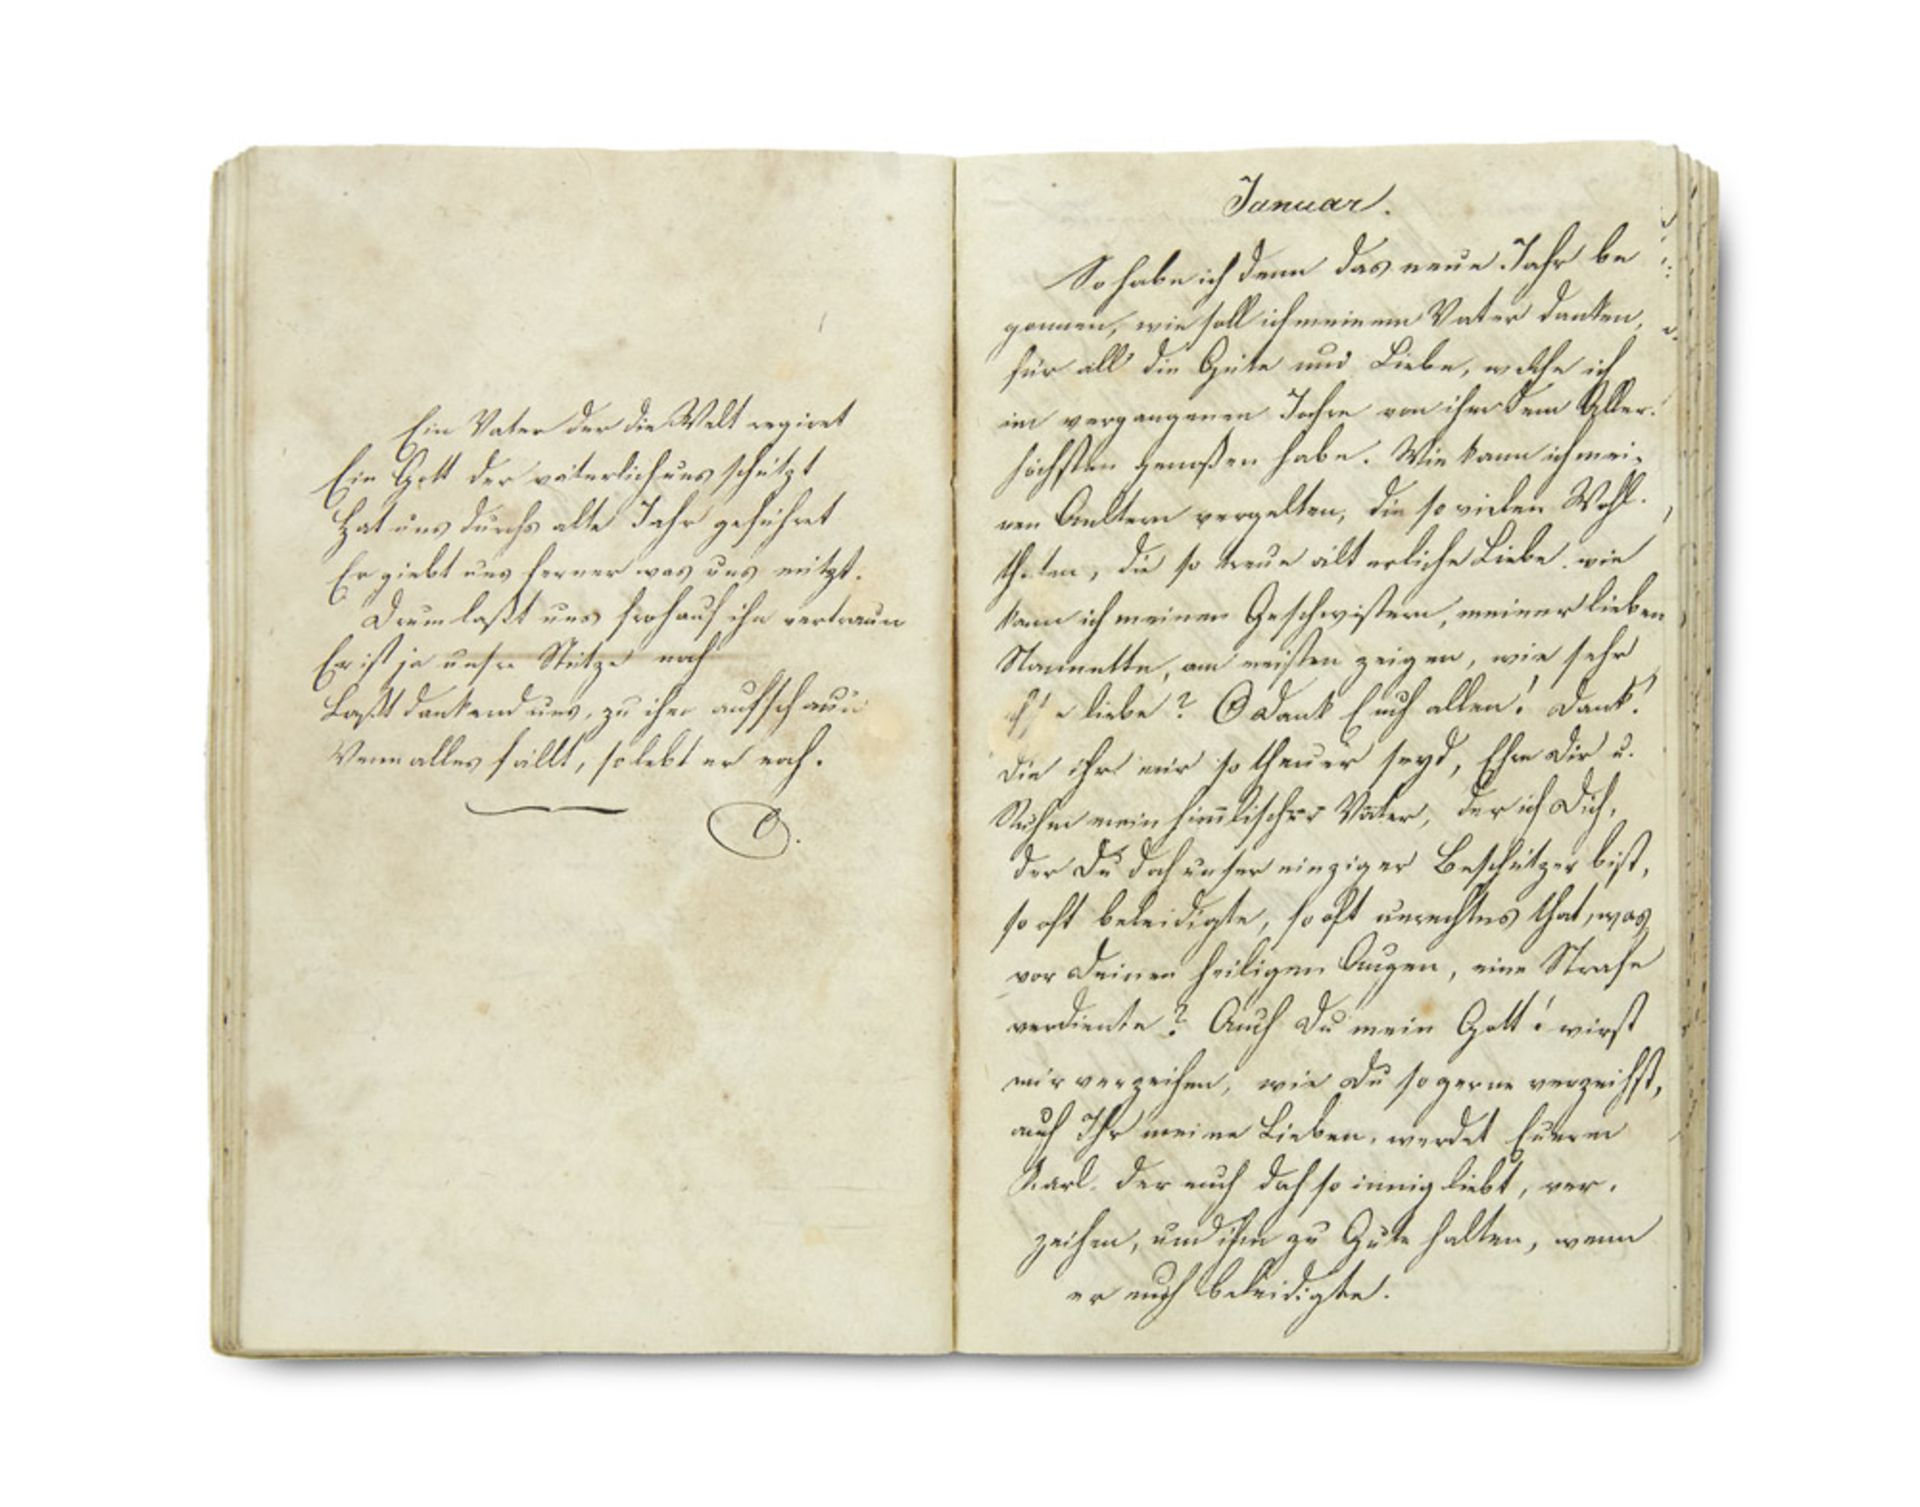 Ein Vater der die Welt regiret
Ein Gott der väterlich uns schützt
Hat uns durchs alte Jahr geführet
Er giebt uns ferner was uns nützt.
Drum laßt uns froh auf ihn vertraun
Er ist ja unsre Stütze noch
Laßt dankend uns, zu ihm aufschaun
Wenn alles fällt, so lebt er noch.
Januar.
So habe ich denn das neue Jahr be
gonnen, wie soll ich meinem Vater danken,
für all die Güte und Liebe, welche ich
im vergangenen Jahre von ihm dem Aller-
höchsten genoßen habe. Wie kann ich mei-
nen Aeltern vergelten, die so vielen Wohl-
thaten, die so treue älterliche Liebe. wie
kann ich meinen Geschwistern, meiner lieben
Nannette, am meisten zeigen, wie sehr
ich sie liebe? O Dank Euch allen! Dank!
die ihr mir so theuer seyd, Ehre Dir u.
Ruhm mein himmlischer Vater, der ich Dich,
der Du doch unser einziger Beschützer bist,
so oft beleidigte, so oft unrechtes that, was
vor Deinen heiligen Augen, eine Strafe
verdiente? Auch Du mein Gott! wirst
mir verzeihen, wie Du so gerne verzeihst,
auch Ihr meine Lieben, werdet Euerm
Karl. der euch doch so innig liebt, ver-
zeihen, und ihm zu Gute halten, wenn
er euch beleidigte.